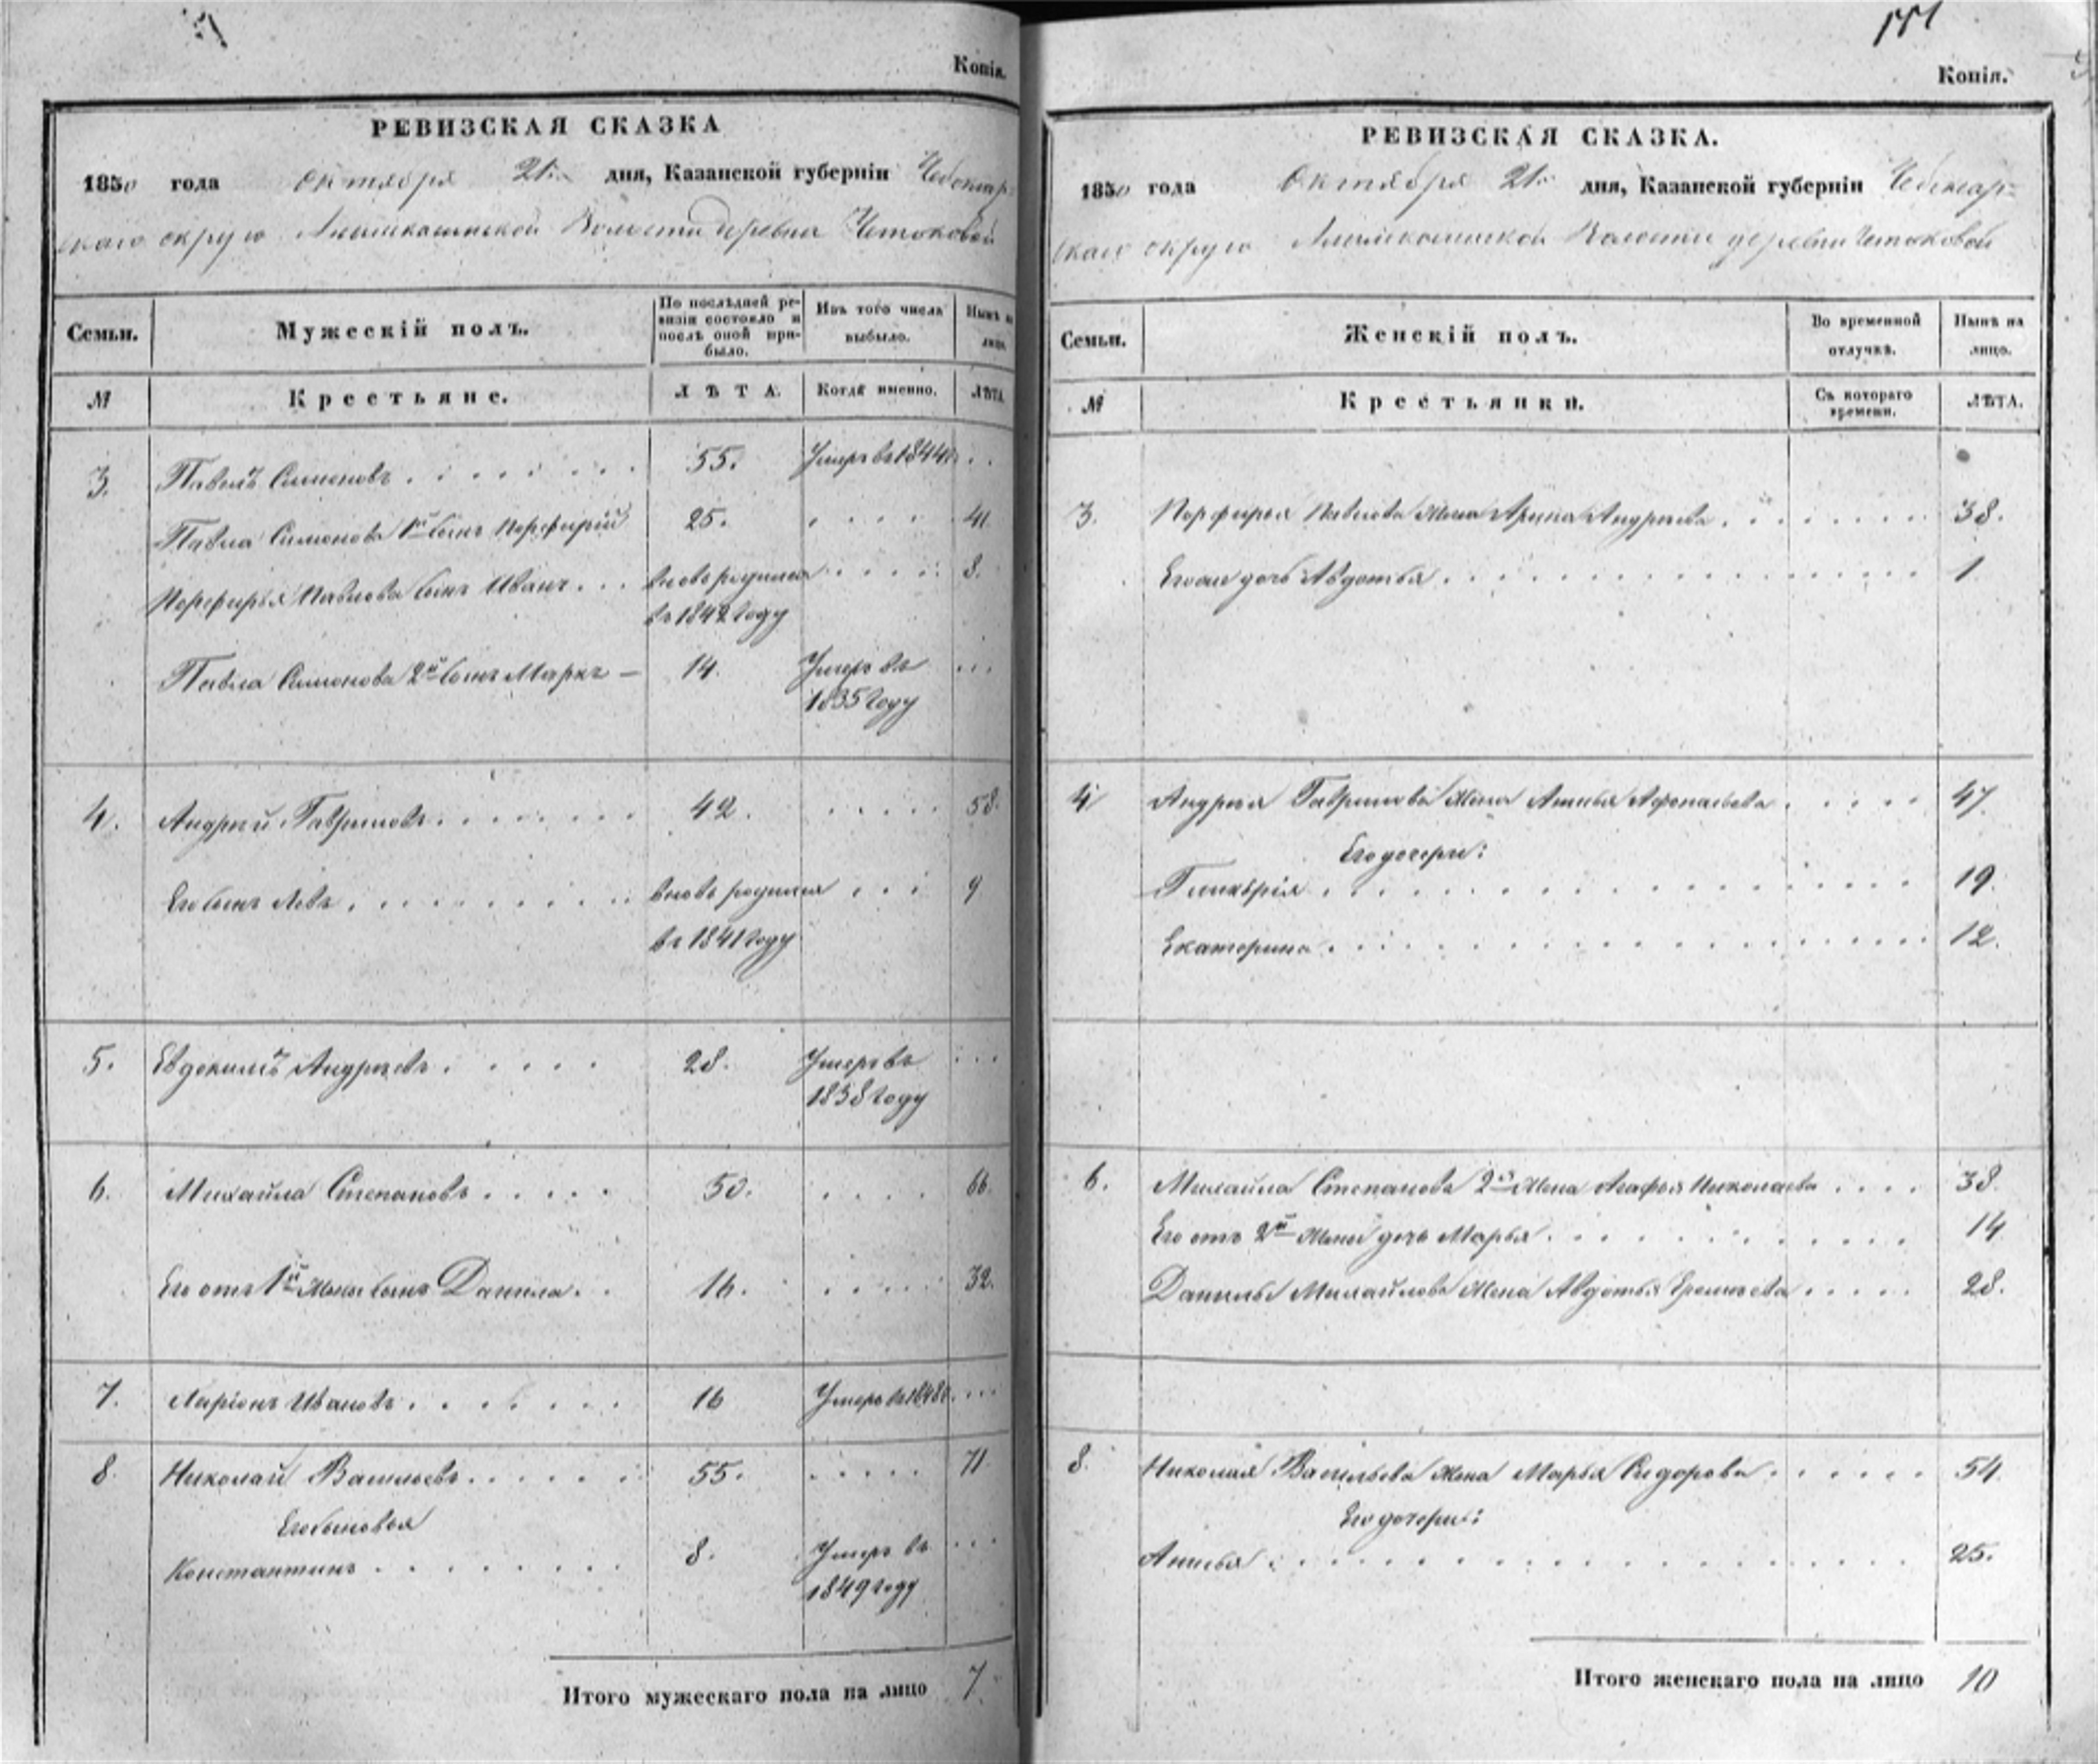 Копія.
РЕВИЗСКАЯ СКАЗКА
1850 года Октября 21го дня, Казанской губерніи Чебоксар-
скаго округа Волости деревни Четоковой
Семьи.
Мужескій полъ.
По послѣдней ре-
визіи состояло и
послѣ оной при-
было.
Изъ того числа
выбыло.
Нынѣ на
лицо.
№
Крестьяне.
ЛѢТА.
Когда именно.
ЛѢТА.
3. Павелъ Симоновъ 55. Умеръ въ 1844г.
Павла Симонова 1й сынъ Порфирій 25. 41
Порфирья Павлова сынъ Иванъ вновь родился 8.
въ 1842 году
Павла Симонова 2й сынъ Маркъ — 14. Умеръ въ
1835 году
4. Андрей Гавриловъ 42. 58.
Его сынъ Левъ вновь родился 9
въ 1841 году
5. Евдокимъ Андреевъ 28. Умеръ въ
1838 году
6. Михайла Степановъ 50. 66.
Его отъ 1й жены сынъ Данила 16. 32.
7. Ларіонъ Ивановъ 16 Умеръ въ 1848г.
8. Николай Васильевъ 55. 71
Его сыновья
Константинъ 8. Умеръ въ
1849 году
Итого мужескаго пола на лицо 7
Копія.
РЕВИЗСКАЯ СКАЗКА.
1850 года Октября 21го дня, Казанской губерніи Чебоксар=
скаго округа Волости деревни Четоковой
Семьи.
Женскій полъ.
Во временной
отлучкѣ.
Нынѣ на
лицо.
№
Крестьянки.
Съ котораго
времени.
ЛѢТА.
3. Порфирья Павлова жена Арина Андреева 38.
Его дочь Авдотья 1
4 Андрея Гаврилова жена Анисья Афонасьева 47.
Его дочери:
Гликерія 19.
Екатерина 12.
6. Михайла Степанова 2я жена Агафья Николаева 38.
Его отъ 2й жены дочь Марья 14
Данилы Михайлова жена Авдотья 28.
8. Николая Васильева жена Марья Сидорова 54
Его дочери:
Анисья 25.
Итого женскаго пола на лицо 10